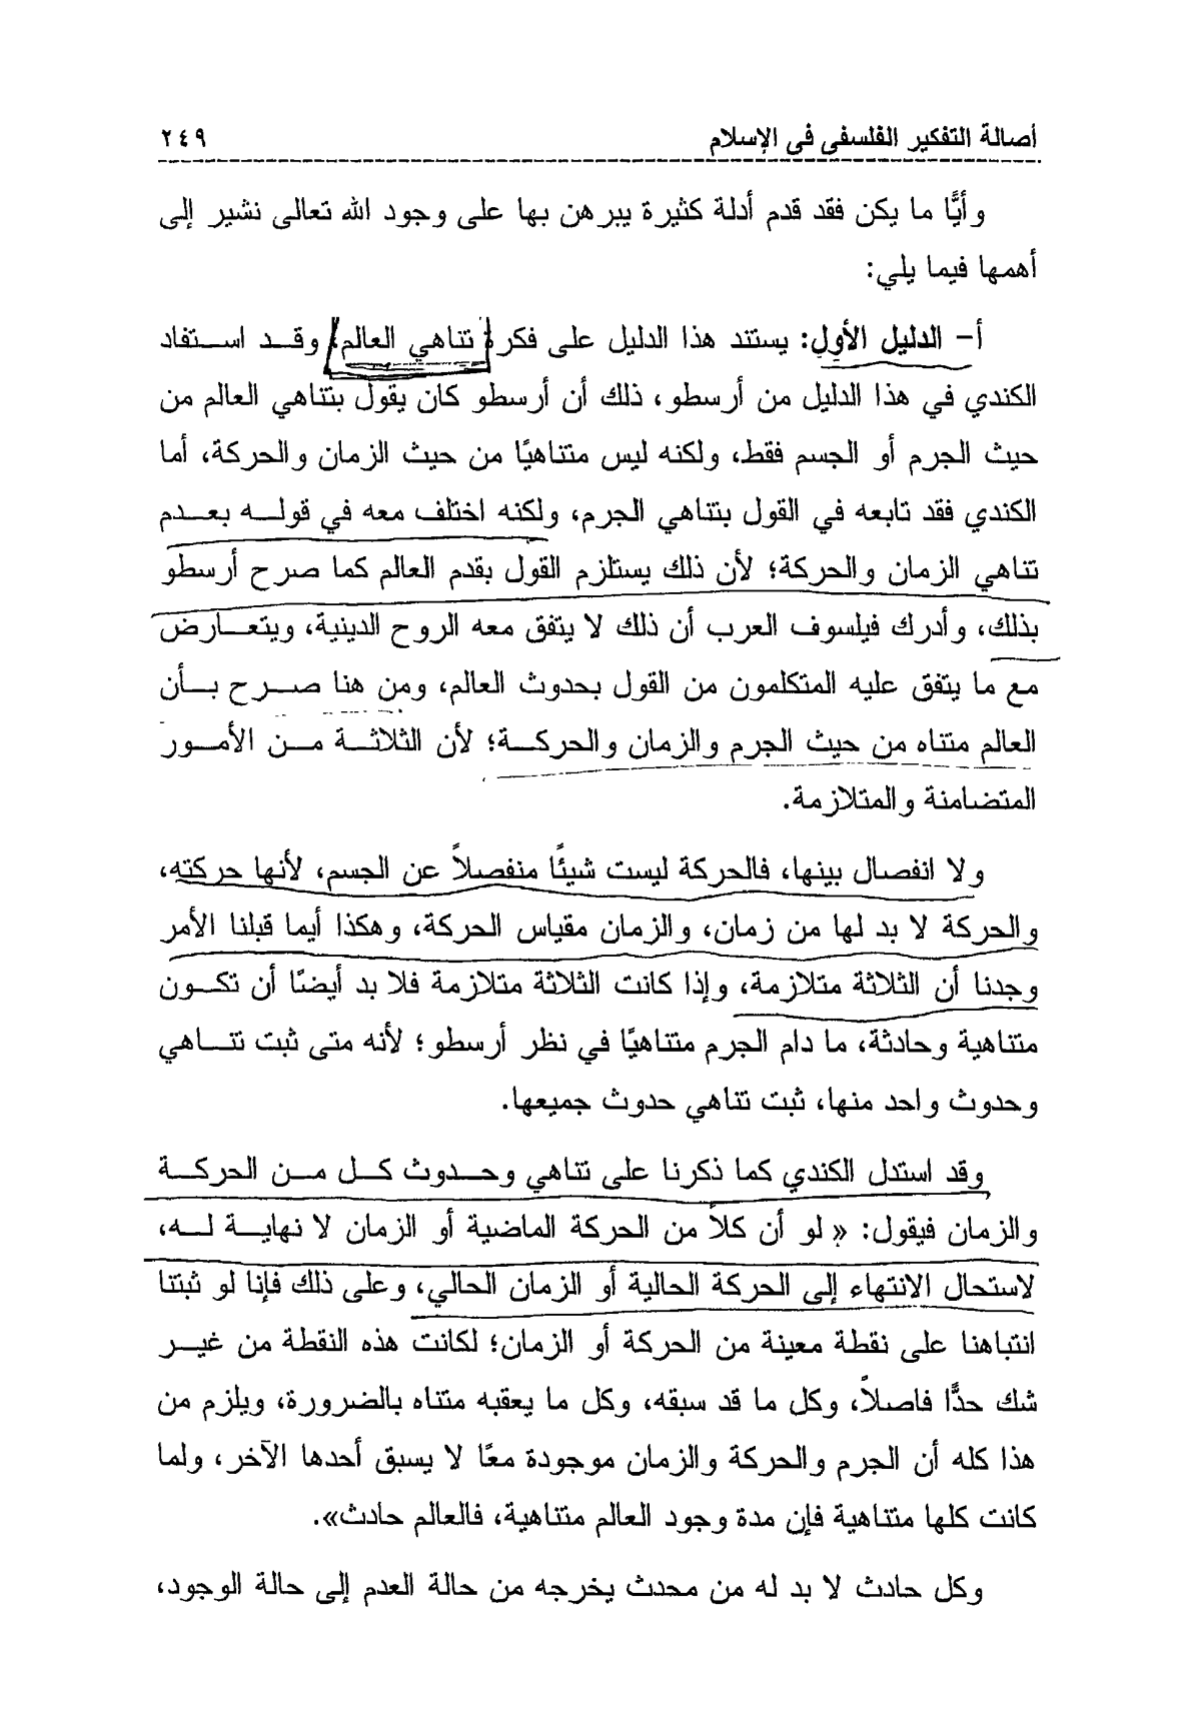 أصالة التفكير الفلسفى فى الإسلام ٢٤٩
وأيًّا ما يكن فقد قدم أدلة كثيرة يبرهن بها على وجود الله تعالى نشير إلى
أهمها فيما يلي:
أ- الدليل الأول: يستند هذا الدليل على فكرة تناهي العالم؛ وقد استفاد
الكندي في هذا الدليل من أرسطو، ذلك أن أرسطو كان يقول بتناهي العالم من
حيث الجرم أو الجسم فقط، ولكنه ليس متناهيًا من حيث الزمان والحركة، أما
الكندي فقد تابعه في القول بتناهي الجرم، ولكنه اختلف معه في قوله بعدم
تناهي الزمان والحركة؛ لأن ذلك يستلزم القول بقدم العالم كما صرح أرسطو
بذلك، وأدرك فيلسوف العرب أن ذلك لا يتفق معه الروح الدينية، ويتعارض
مع ما يتفق عليه المتكلمون من القول بحدوث العالم، ومن هنا صرح بأن
العالم متناه من حيث الجرم والزمان والحركة؛ لأن الثلاثة من الأمور
المتضامنة والمتلازمة.
ولا انفصال بينها، فالحركة ليست شيئًا منفصلاً عن الجسم، لأنها حركته،
والحركة لا بد لها من زمان، والزمان مقياس الحركة، وهكذا أيما قبلنا الأمر
وجدنا أن الثلاثة متلازمة، وإذا كانت الثلاثة متلازمة فلا بد أيضًا أن تكون
متناهية وحادثة، ما دام الجرم متناهيًا في نظر أرسطو؛ لأنه متى ثبت تناهي
وحدوث واحد منها، ثبت تناهي حدوث جميعها.
وقد استدل الكندي كما ذكرنا على تناهي وحدوث كل من الحركة
والزمان فيقول: «لو أن كلاً من الحركة الماضية أو الزمان لا نهاية له،
لاستحال الانتهاء إلى الحركة الحالية أو الزمان الحالي، وعلى ذلك فإنا لو ثبتنا
انتباهنا على نقطة معينة من الحركة أو الزمان؛ لكانت هذه النقطة من غير
شك حدًّا فاصلاً، وكل ما قد سبقه، وكل ما يعقبه متناه بالضرورة، ويلزم من
هذا كله أن الجرم والحركة والزمان موجودة معًا لا يسبق أحدها الآخر، ولما
كانت كلها متناهية فإن مدة وجود العالم متناهية، فالعالم حادث».
وكل حادث لا بد له من محدث يخرجه من حالة العدم إلى حالة الوجود،